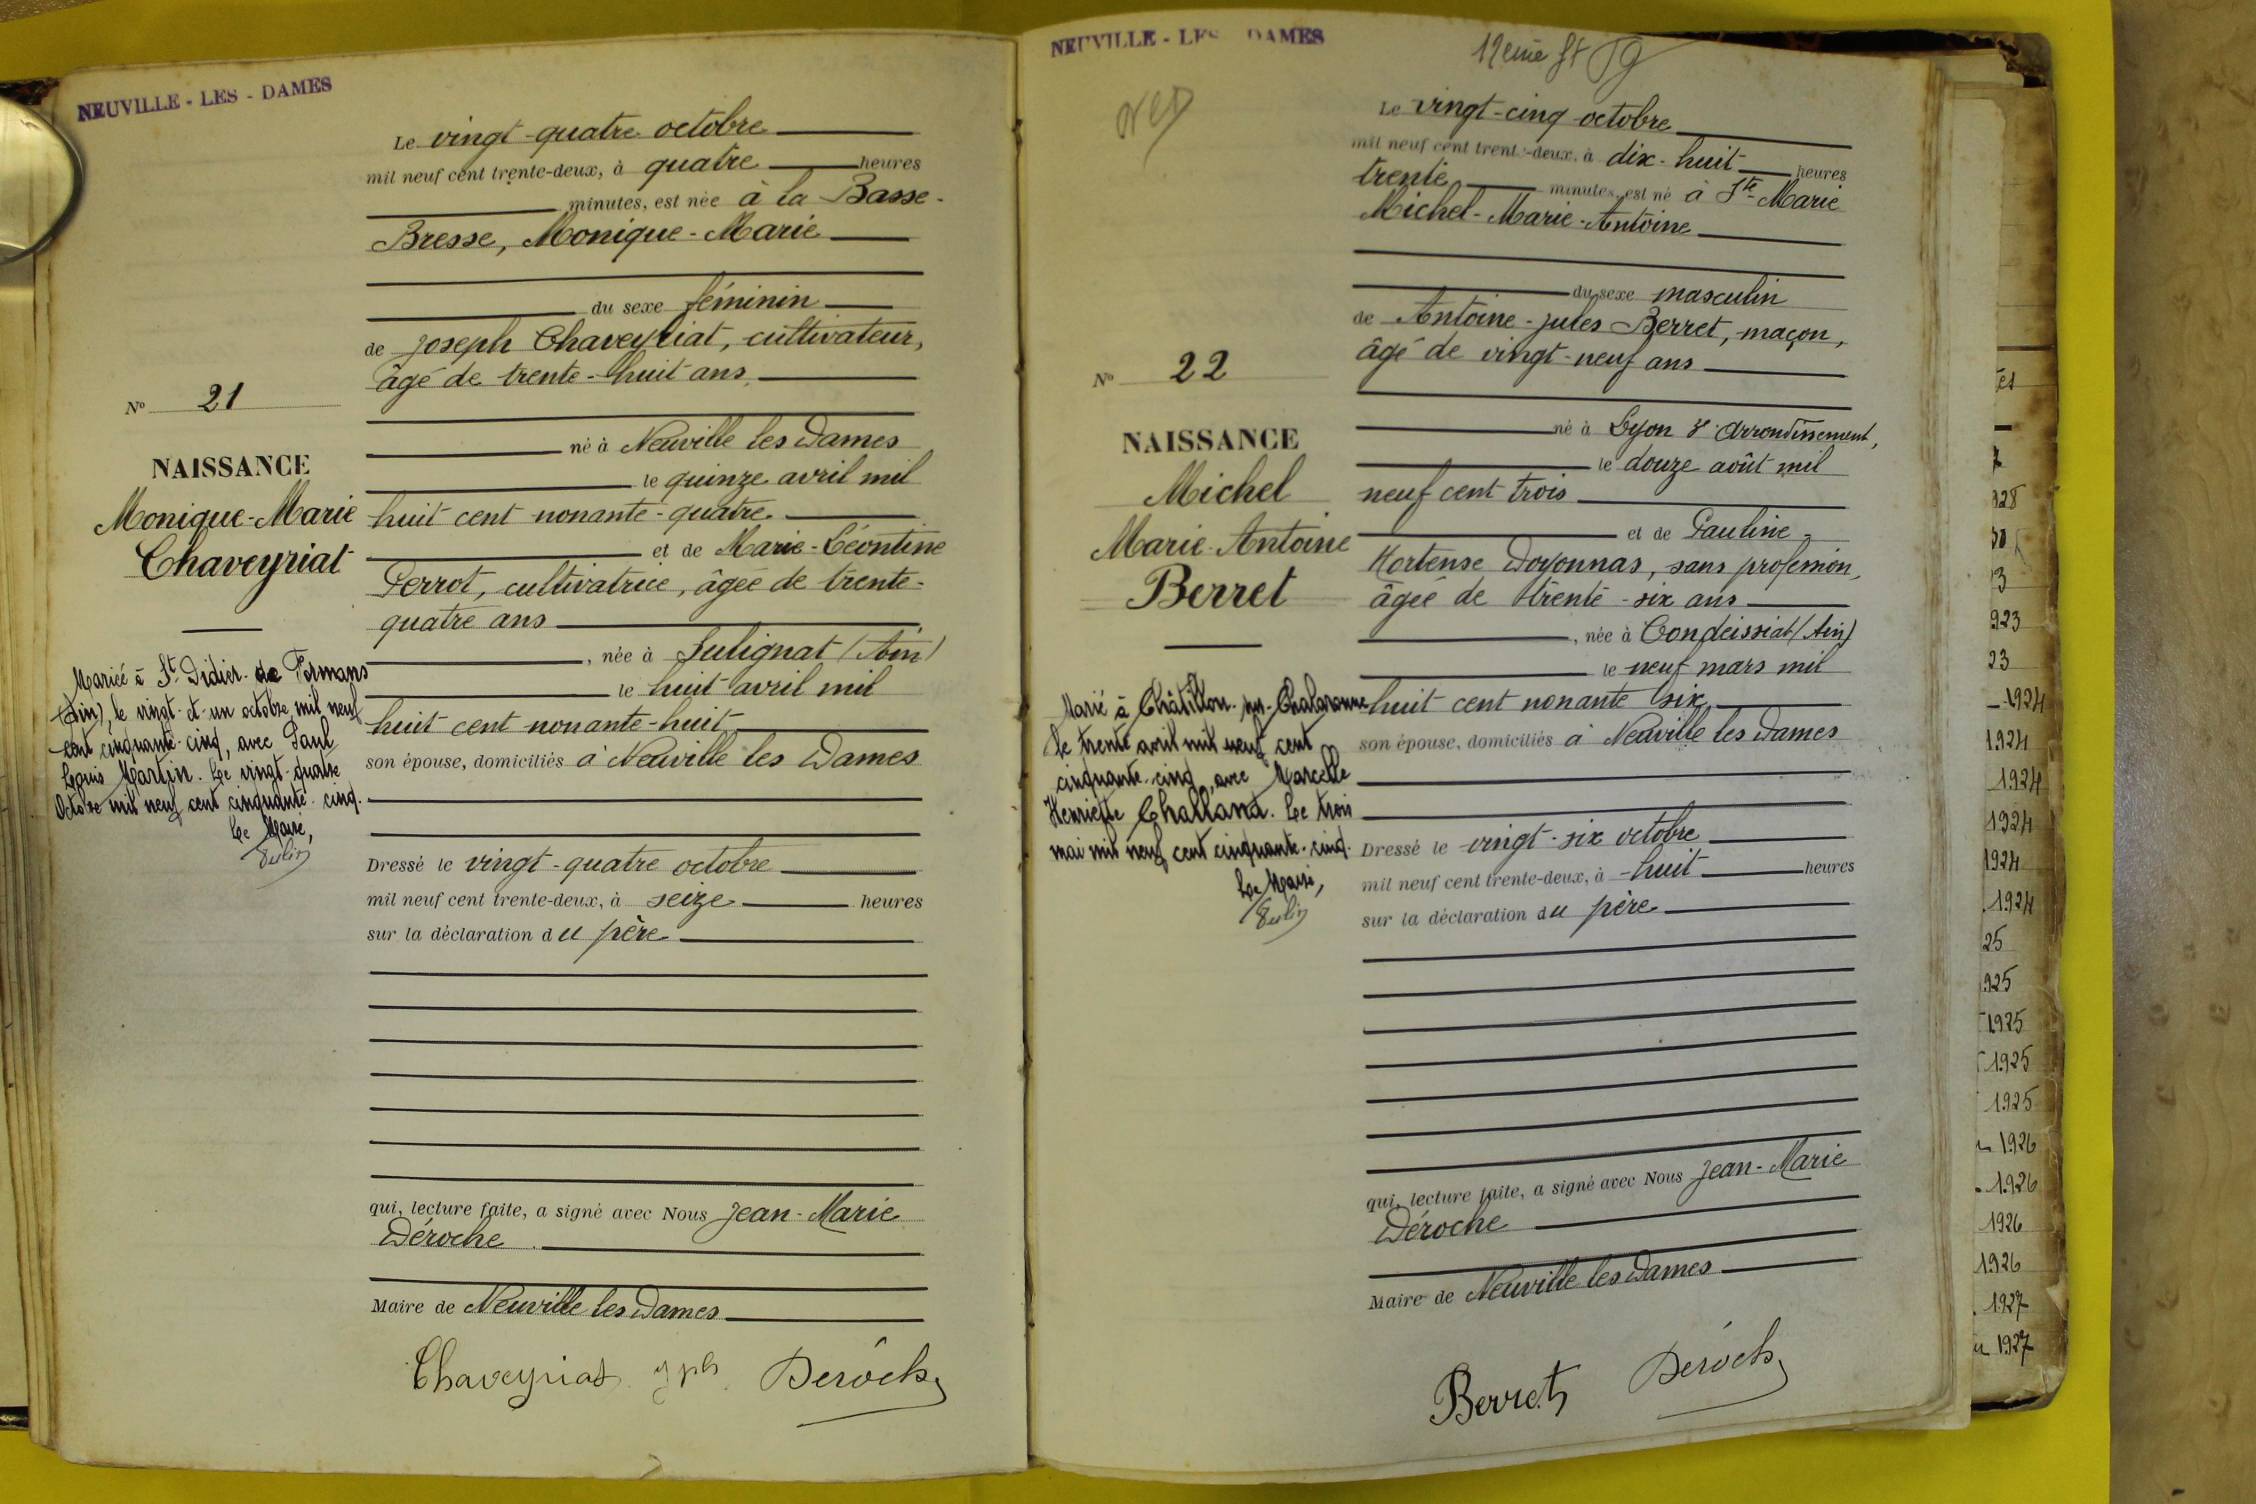 NEUVILLE - LES - DAMES
Le vingt-quatre octobre
mil neuf cent trente-deux, à quatre heures
minutes, est née à la Basse-
Bresse, Monique-Marie
du sexe féminin
de Joseph Chaveyriat, cultivateur,
âgé de trente-huit ans
né à Neuville les Dames
le quinze avril mil
huit cent nonante-quatre
et de Marie-Léontine
Perrot, cultivatrice, âgée de trente-
quatre ans
, née à Sulignat (Ain)
le huit avril mil
huit cent nonante-huit
son épouse, domiciliés à Neuville les Dames
Dressé le vingt-quatre octobre
mil neuf cent trente-deux, à seize heures
sur la déclaration du père
qui, lecture faite, a signé avec Nous Jean-Marie
Déroche
Maire de Neuville les Dames
Chaveyriat jph Déroche
No 21
NAISSANCE
Monique-Marie
Chaveyriat
Mariée à St Didier de Formans
(Ain), le vingt-et-un octobre mil neuf
cent cinquante-cinq, avec Paul
Louis Martin. Le vingt-quatre
Octobre mil neuf cent cinquante-cinq.
Le Maire,
NEUVILLE - LES DAMES
12eme
Le vingt-cinq octobre
mil neuf cent trente-deux, à dix-huit heures
trente minutes, est né à Ste-Marie
Michel-Marie-Antoine
du sexe masculin
de Antoine-Jules Berret, maçon,
âgé de vingt-neuf ans
né à Lyon 3e Arrondissement,
le douze août mil
neuf cent trois
et de Pauline-
Hortense Doyonnas, sans profession,
âgée de trente-six ans
, née à Condeissiat (Ain)
le neuf mars mil
huit cent nonante six
son épouse, domiciliés à Neuville les Dames
Dressé le vingt-six octobre
mil neuf cent trente-deux, à huit heures
sur la déclaration du père
qui, lecture faite, a signé avec Nous Jean-Marie
Déroche
Maire de Neuville les Dames
Berret Déroche
No 22
NAISSANCE
Michel
Marie-Antoine
Berret
Marié à Châtillon-sur-Chalaronne
le trente avril mil neuf cent
cinquante-cinq, avec Marcelle
Henriette Challand. Le trois
mai mil neuf cent cinquante-cinq.
Le Maire,
923
23
1924
1924
1924
1924
1924
1924
25
925
1925
1925
1925
1926
1926
1926
1926
1927
1927